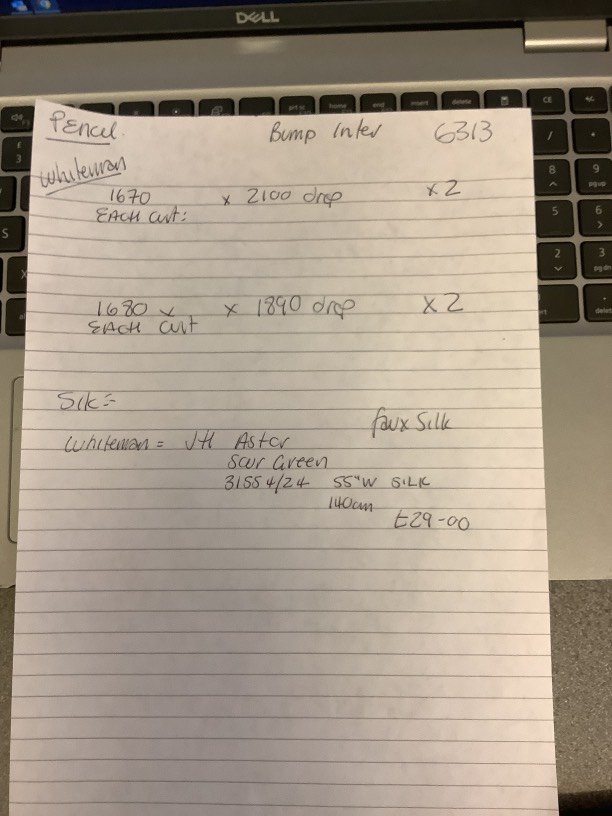 DELL
Pencil. Bump Inter 6313
Whiteman
1670 x 2100 drop x 2
EACH Curt:
1680 x x 1890 drop x 2
EACH Curt
Silk =
faux Silk
Whiteman = JH Astor
Green
31554/24 55"W SILK
140cm
£29-00